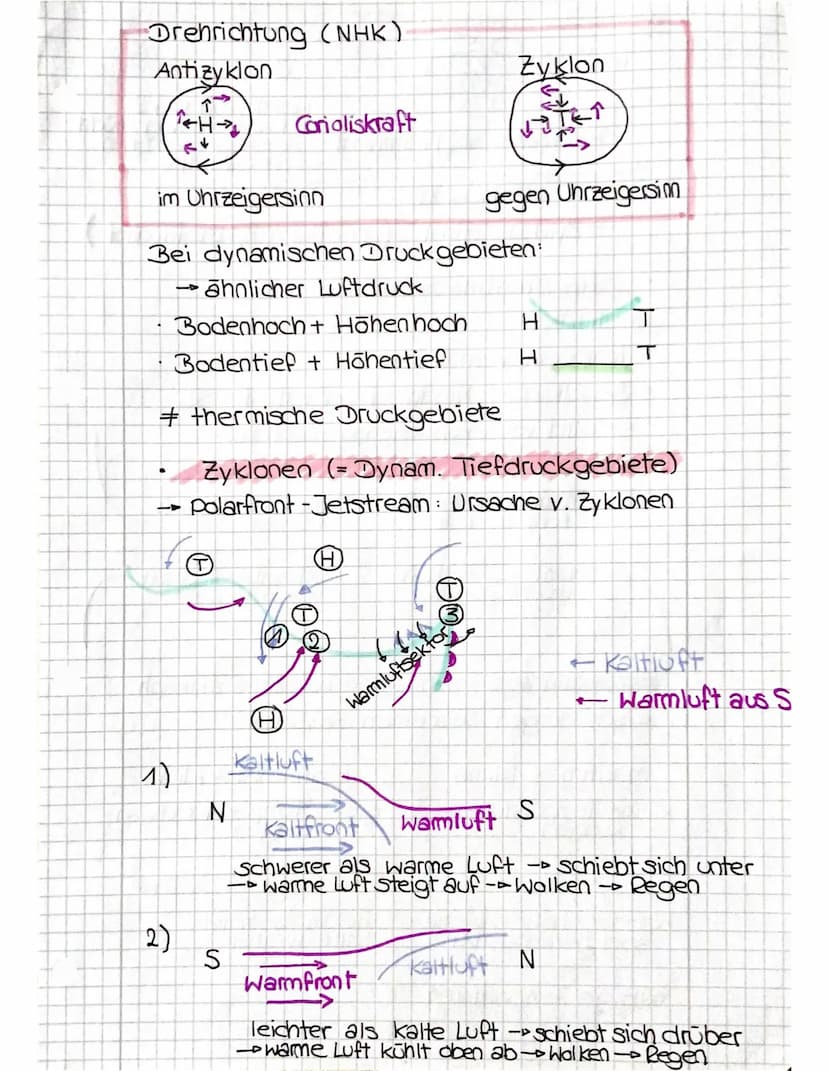 Drehrichtung (NHK)
Antizyklon
Zyklon
H
Corioliskraft
T
im Uhrzeigersinn
gegen Uhrzeigersinn
Bei dynamischen Druckgebieten:
→ ähnlicher Luftdruck
· Bodenhoch + Höhenhoch H T
· Bodentief + Höhentief H T
≠ thermische Druckgebiete
• Zyklonen (= Dynam. Tiefdruckgebiete)
→ Polarfront-Jetstream: Ursache v. Zyklonen
T
H
T
T
1
2
3
Warmluftsektor
H
← Kaltluft
← Warmluft aus S
1)
Kaltluft
N
S
Kaltfront
Warmluft
schwerer als warme Luft → schiebt sich unter
→ warme Luft steigt auf → Wolken → Regen
2)
S
Kaltluft
N
Warmfront
leichter als kalte Luft → schiebt sich drüber
→ warme Luft kühlt oben ab → Wolken → Regen